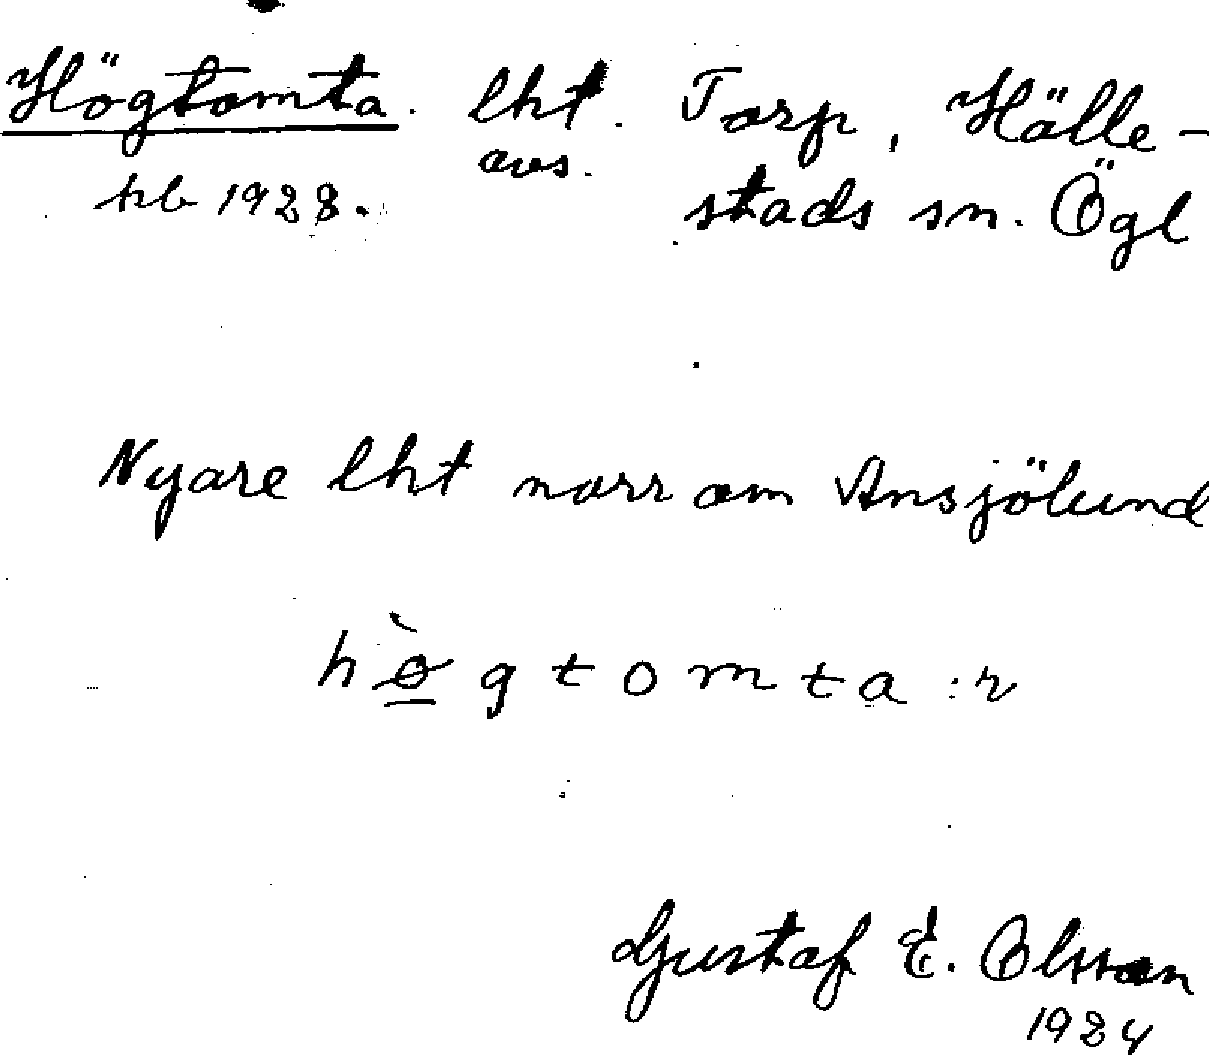 Högtomta. lht. Torp, Hälle-
avs. stads sn. Ögl
kb 1928.
Nyare lht norr om Ansjölund
hø̀gtomta:r
Gustaf E. Olsson
1924